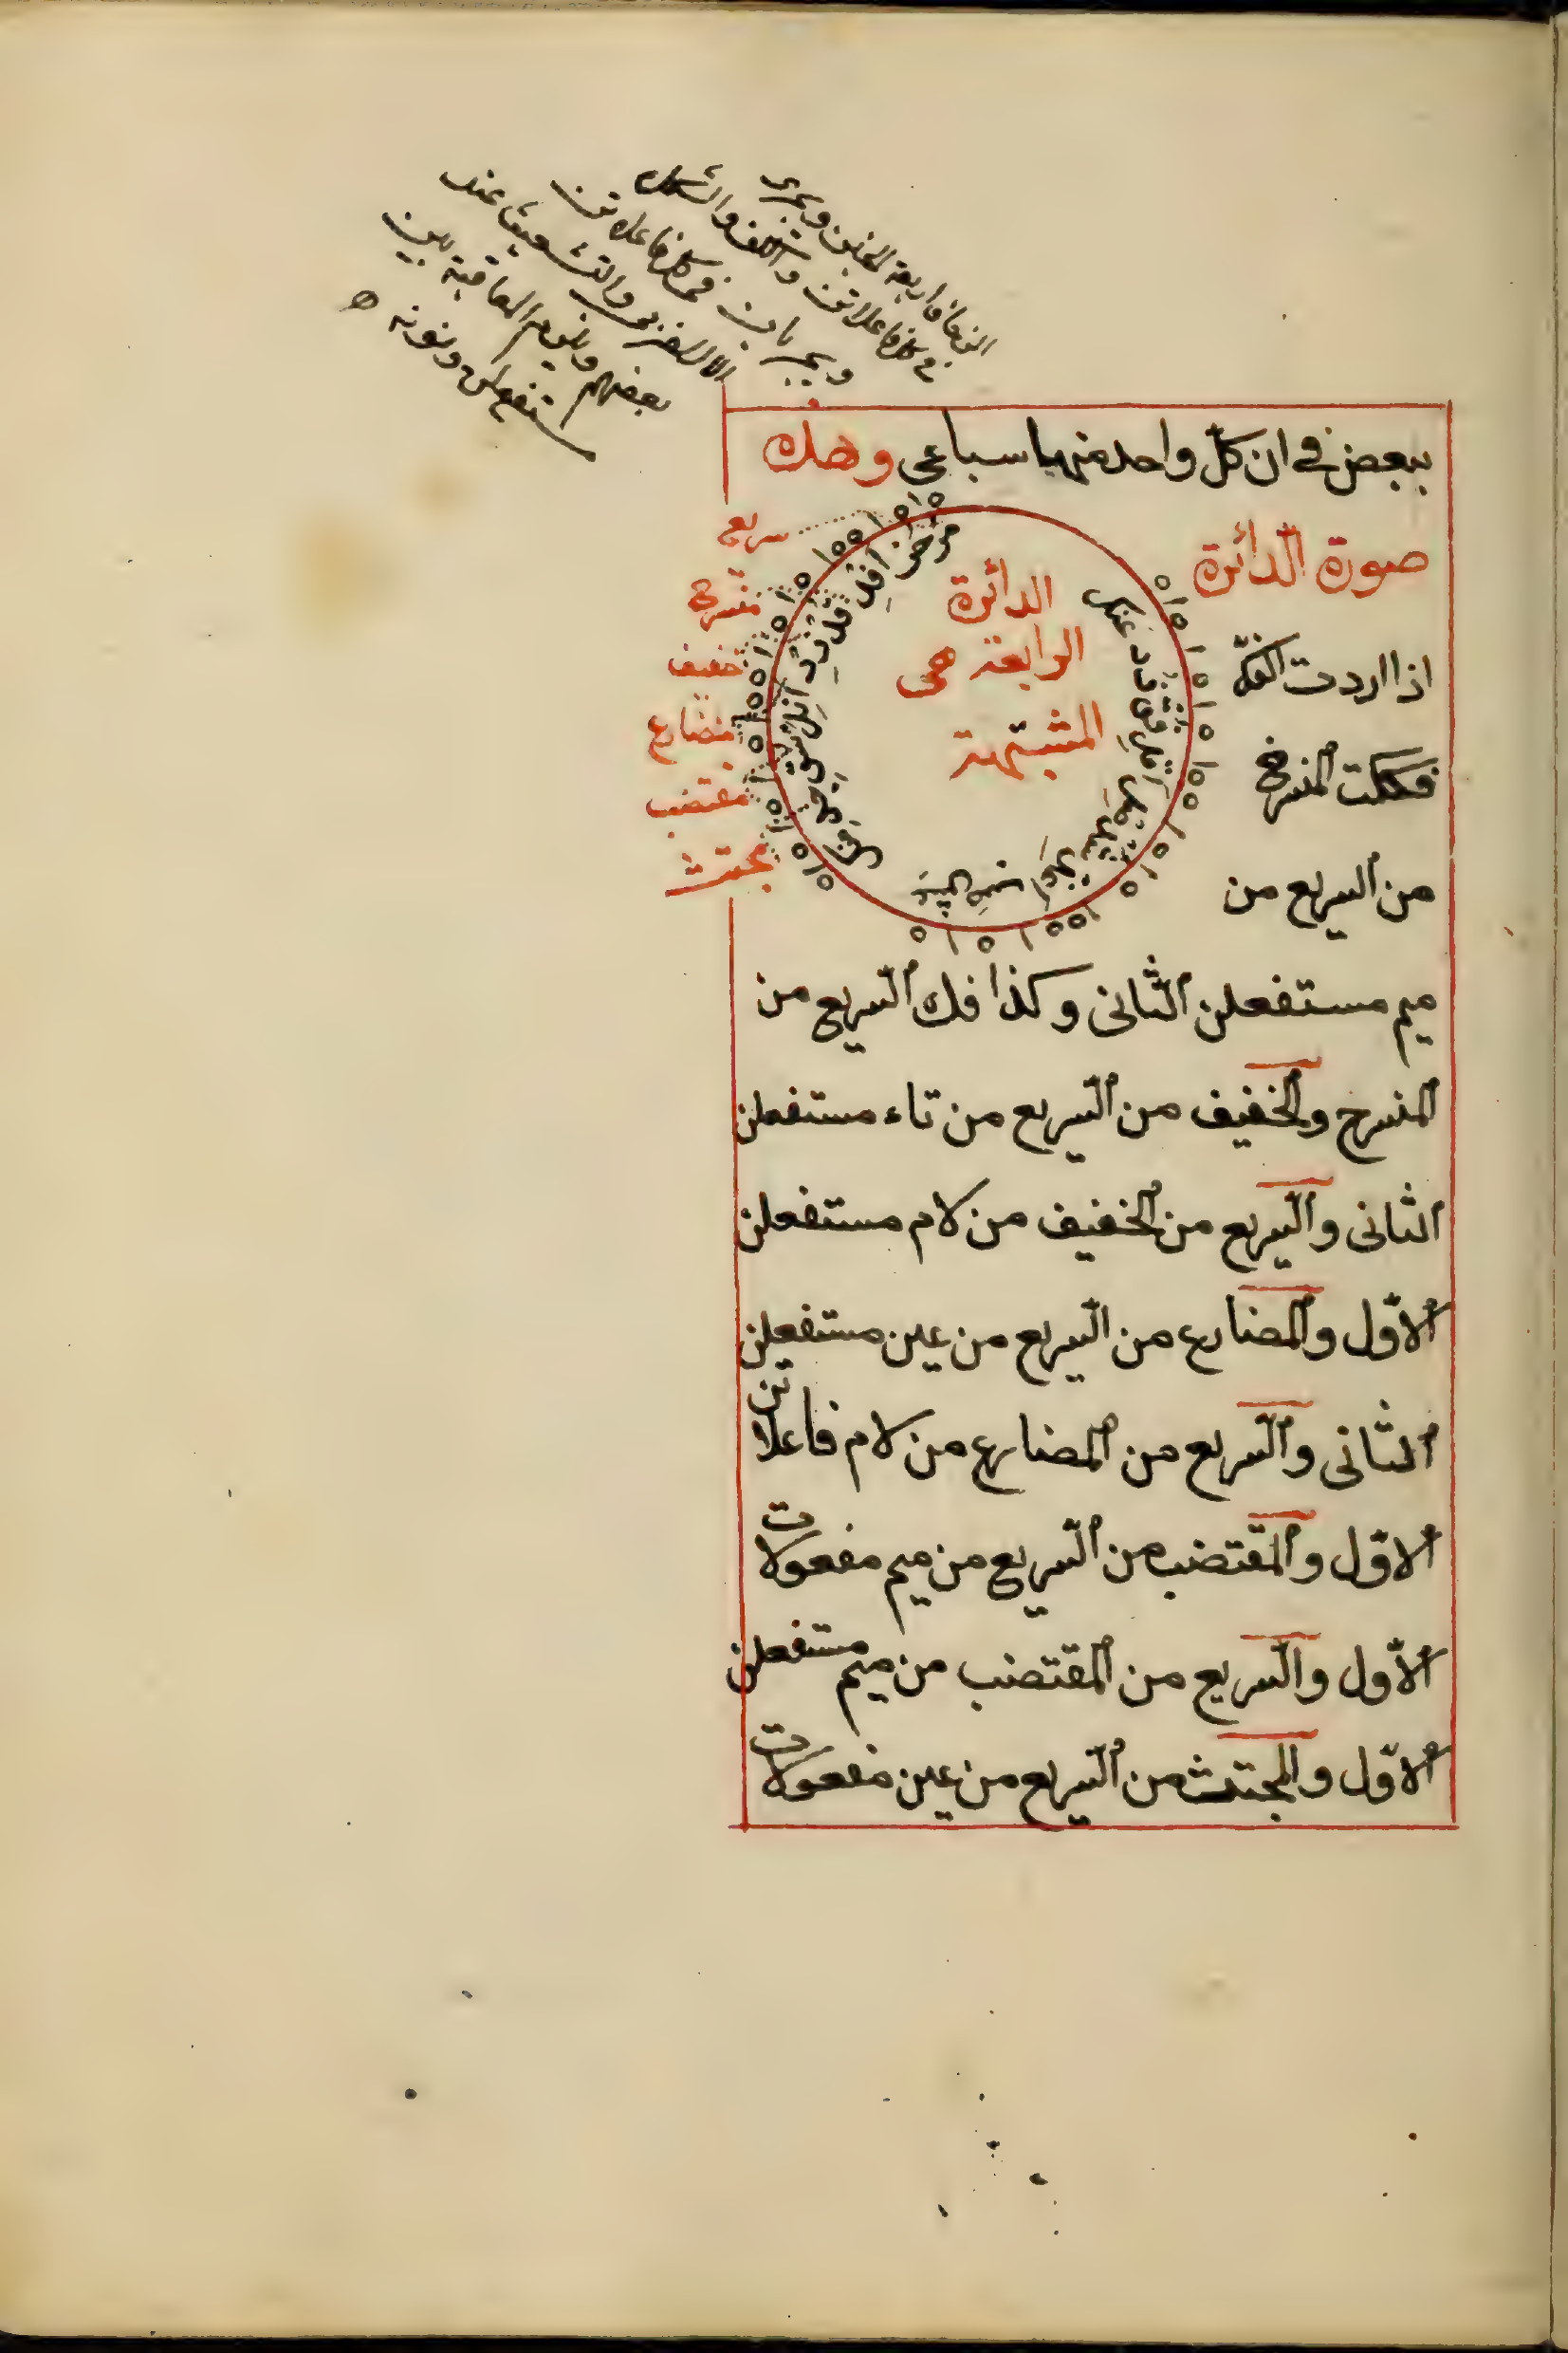 ويجرى
في كل فاعلاتن والكف والشكل
ويجريان في كل فاعلاتن
الا الضرب والتشعيث عند
بعضهم ويلزم المعاقبة بين
مستفعلن ونونه
ببعض في ان كل واحد منها سباعى وهذه
صورة الدائرة
الدائرة
الرابعة هى
المشتبهة
سريع
منسرح
خفيف
مضارع
مقتضب
مجتث
اذا اردت الفكّ
فككت المنسرح
من السريع من
ميم مستفعلن الثانى وكذا فك السريع من
المنسرح والخفيف من السريع من تاء مستفعلن
الثانى والسريع من الخفيف من لام مستفعلن
الاوّل والمضارع من السريع من عين مستفعلن
الثانى والسريع من المضارع من لام فاعلاتن
الاوّل والمقتضب من السريع من ميم مفعولات
الاوّل والسريع من المقتضب من ميم مستفعلن
الاوّل والمجتث من السريع من عين مفعولات